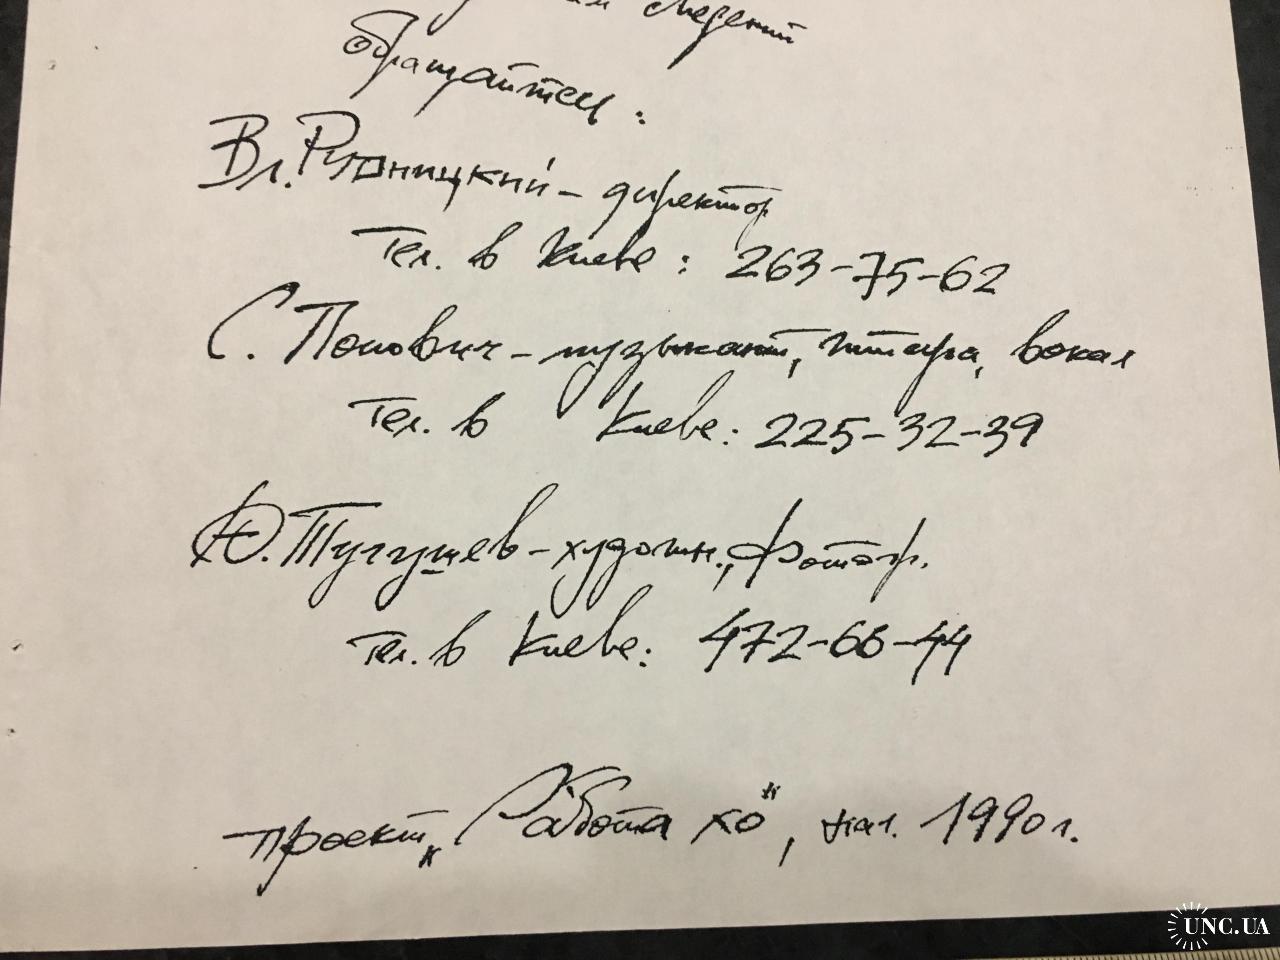 сведений
обращайтесь:
Вл. Рудницкий – директор
Тел. в Киеве: 263-75-62
С. Попович – музыкант, гитара, вокал
Тел. в Киеве: 225-32-39
Ю. Тугушев – художн., фотогр.
тел. в Киеве: 472-66-44
проект „Работа хо", нач. 1990 г.
UNC.UA